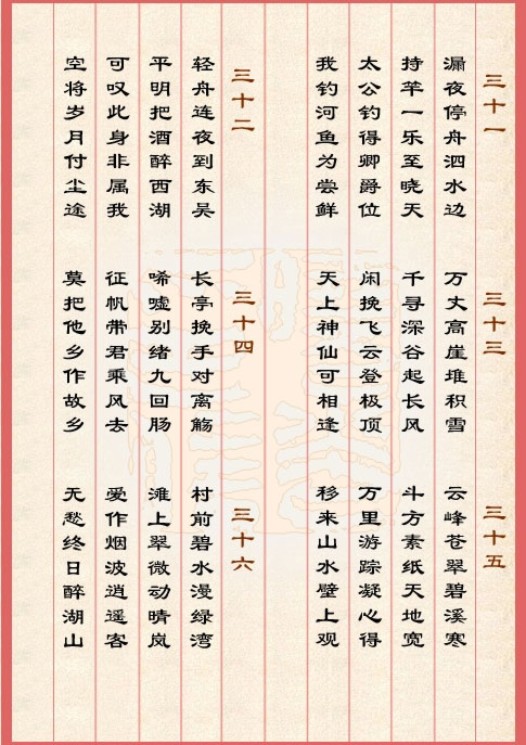 三十一
漏夜停舟泗水边
持竿一乐至晓天
太公钓得卿爵位
我钓河鱼为尝鲜
三十二
轻舟连夜到东吴
平明把酒醉西湖
可叹此身非属我
空将岁月付尘途
三十三
万丈高崖堆积雪
千寻深谷起长风
闲挽飞云登极顶
天上神仙可相逢
三十四
长亭挽手对离觞
唏嘘别绪九回肠
征帆带君乘风去
莫把他乡作故乡
三十五
云峰苍翠碧溪寒
斗方素纸天地宽
万里游踪凝心得
移来山水壁上观
三十六
村前碧水漫绿湾
滩上翠微动晴岚
爱作烟波逍遥客
无愁终日醉湖山